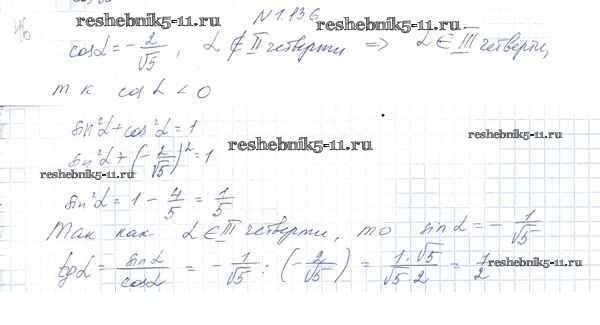 N 1.136
reshebnik5-11.ru
reshebnik5-11.ru
cos α = - 2/√5, α ∉ II четверти => α ∈ III четверти,
т к cos α < 0
sin²α + cos²α = 1
sin²α + (- 2/√5)² = 1
reshebnik5-11.ru
reshebnik5-11.ru
sin²α = 1 - 4/5 = 1/5
reshebnik5-11.ru
Так как α ∈ III четверти, то sin α = - 1/√5
tg α = sin α / cos α = - 1/√5 : (- 2/√5) = 1·√5 / √5·2 = 1/2
reshebnik5-11.ru